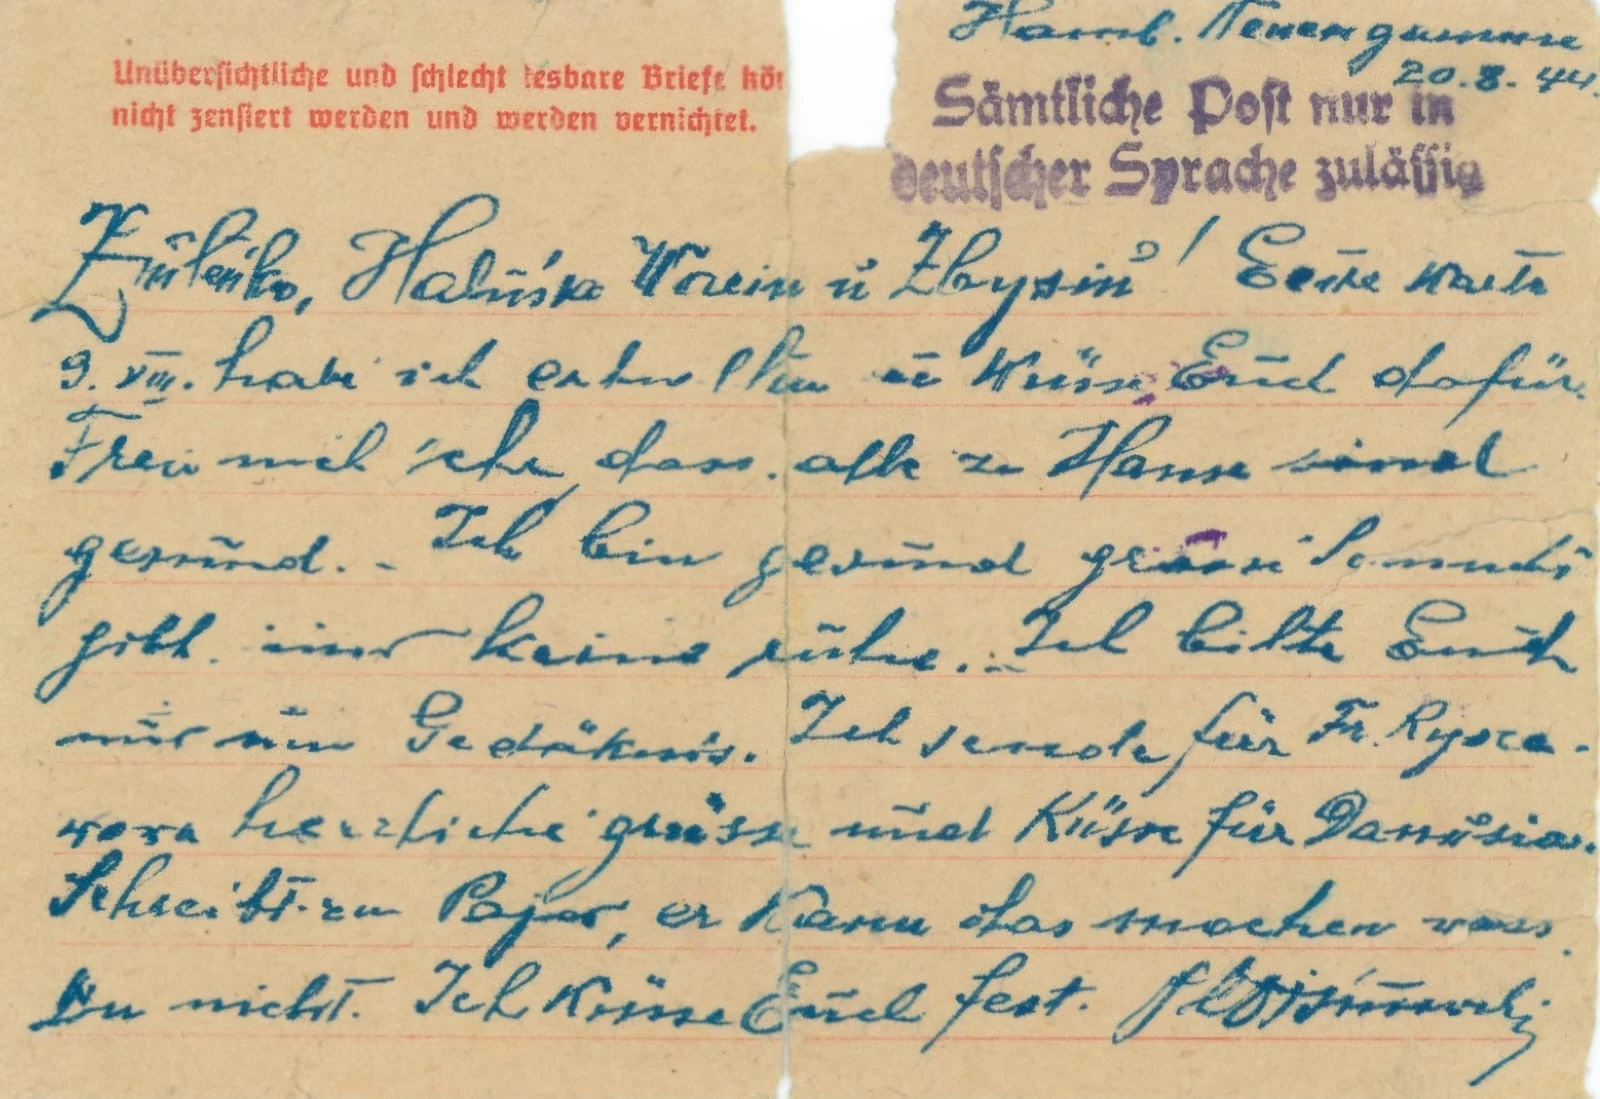 Hamb. Neuengamme
20.8.44.
Unübersichtliche und schlecht lesbare Briefe kön
nicht zensiert werden und werden vernichtet.
Sämtliche Post nur in
deutscher Sprache zulässig
Haluśka u Zbysiu! Eure
9. VIII. habe ich erhalten u Küsse Euch dafür.
Freu mich sehr, dass alle zu Hause sind
gesund. - Ich bin gesund grosse
gibt mir keine ruhe. Ich bitte Euch
nur um Gedäknis. Ich sende für Fr. Rysza-
wera herzliche grüsse und Küsse für Danusia.
Schreibt zu Pajer, er kann das machen was
Du nicht. Ich Küsse Euch fest.